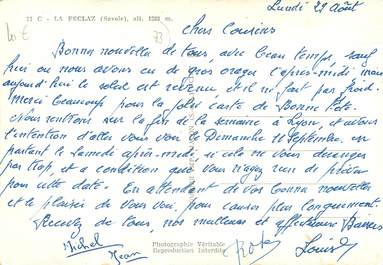 Lundi 29 Août
11 C - LA FECLAZ (Savoie), alt. 1388 m.
73
Chers Cousins
Bonne nouvelle de tous, avec beau temps, sauf
hier ou nous avons eu de gros orages l'après-midi, mais
aujourd'hui le soleil est revenu, et il ne fait pas froid.
Merci beaucoup pour la jolie carte de Bonne fête.
Nous rentrons sur la fin de la semaine à Lyon, et avons
l'intention d'aller vous voir le Dimanche 11 Septembre, en
partant le samedi après-midi, si cela ne vous dérange
pas trop, et a condition que vous n'ayez rien de prévu
pour cette date. En attendant de vos bonnes nouvelles
et le plaisir de vous voir, pour causer plus longuement.
Recevez de tous, nos meilleurs et affectueux Baisers
Michel
Jean
Photographie Véritable
Reproduction Interdite